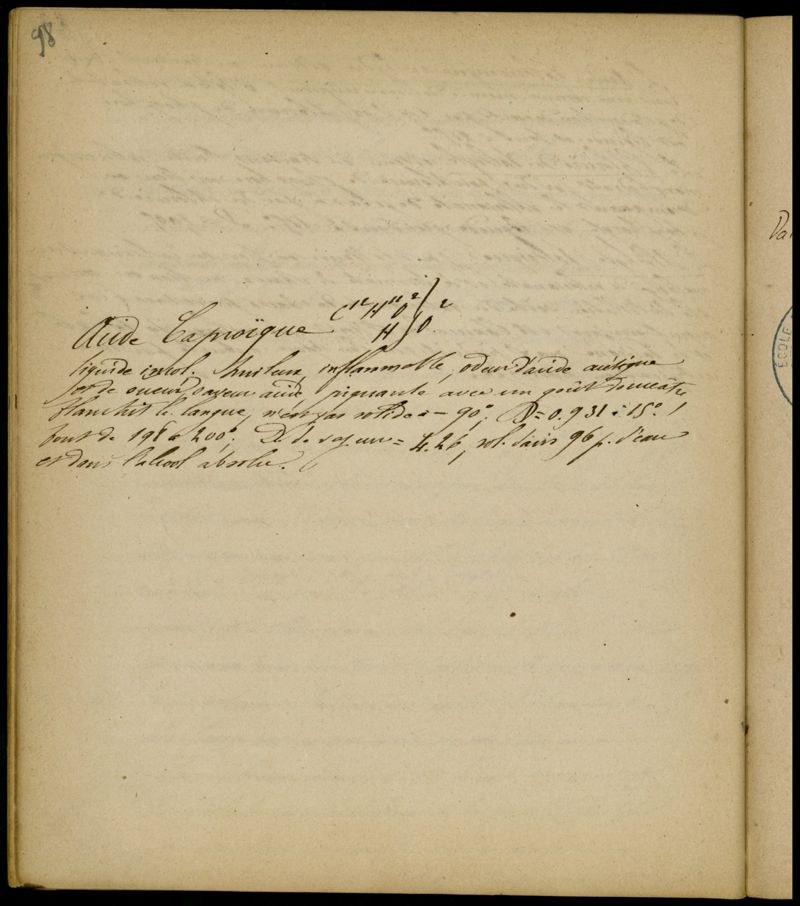 98
Acide Caproïque C¹²H¹¹O² } O²
H
liquide incol. huileux, inflammable, odeur d'acide acétique
et de sueur, saveur acide, piquante avec un goût douceâtre
blanchit la langue, n'est pas solide à – 9°; D = 0.931 à 15°;
bout de 198 à 200°; D. de vapeur = 4.26, sol. dans 96 p. d'eau
et dans l'alcool absolu.
ÉCOLE